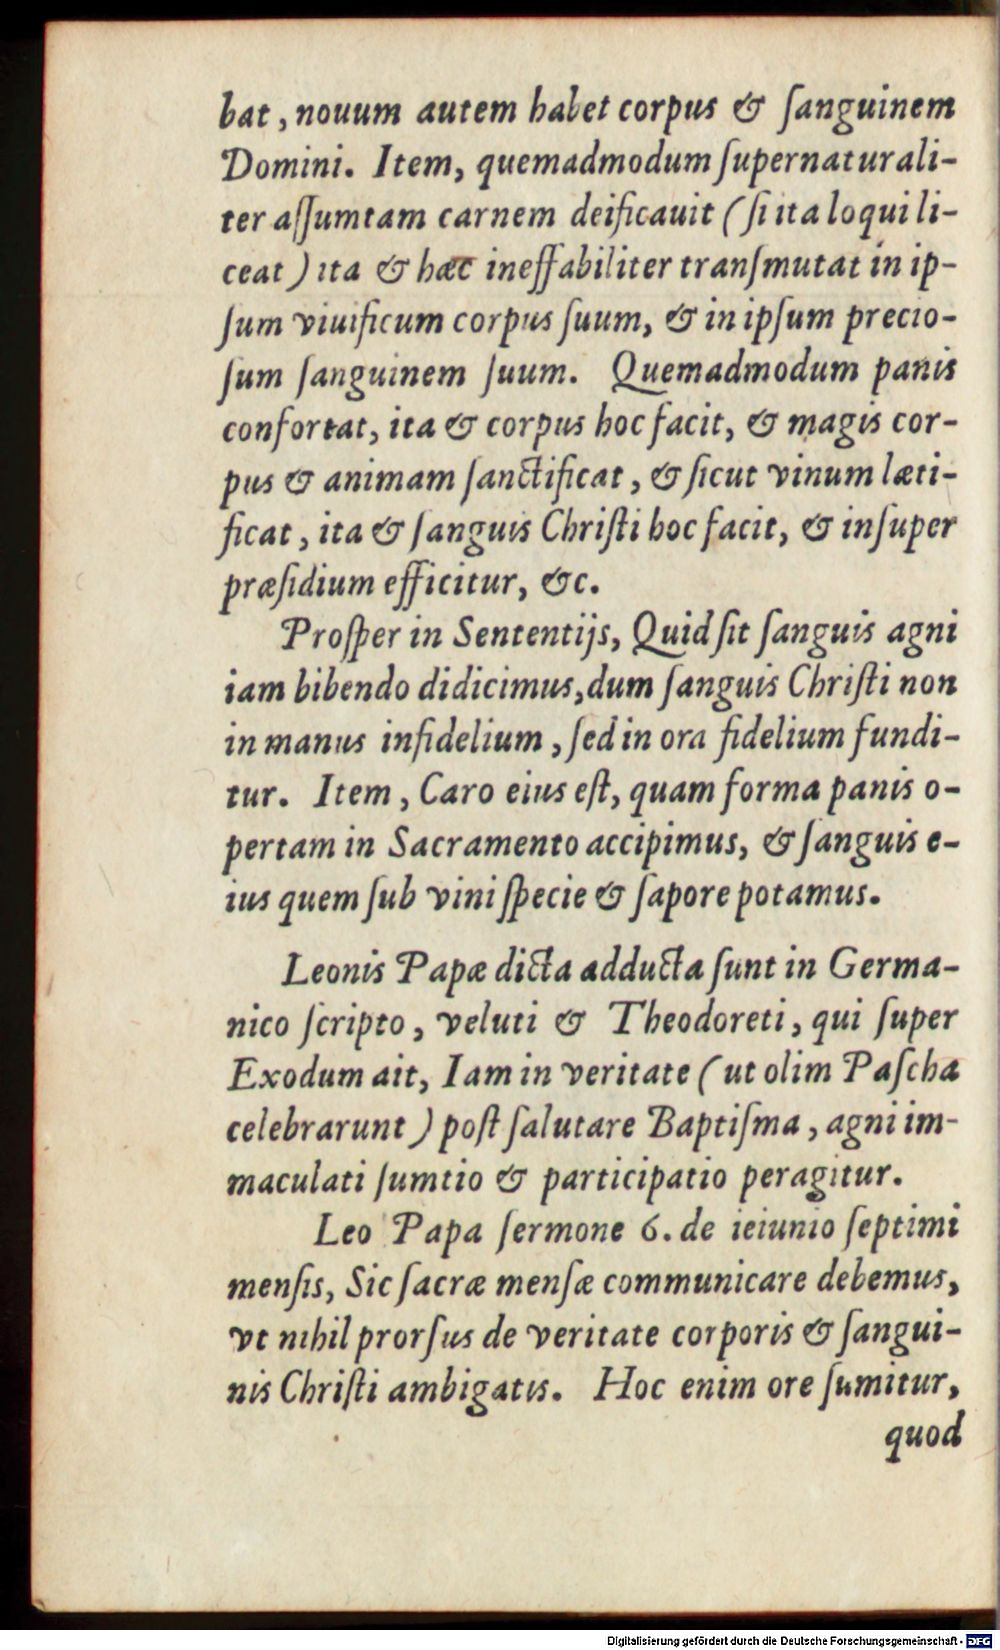 bat, nouum autem habet corpus & ſanguinem
Domini. Item, quemadmodum ſupernaturali-
ter aſſumtam carnem deificauit (ſi ita loqui li-
ceat) ita & hæc ineffabiliter tranſmutat in ip-
ſum viuificum corpus ſuum, & in ipſum precio-
ſum ſanguinem ſuum. Quemadmodum panis
confortat, ita & corpus hoc facit, & magis cor-
pus & animam ſanctificat, & ſicut vinum læti-
ficat, ita & ſanguis Chriſti hoc facit, & inſuper
præſidium efficitur, &c.
Proſper in Sententijs, Quid ſit ſanguis agni
iam bibendo didicimus, dum ſanguis Chriſti non
in manus infidelium, ſed in ora fidelium fundi-
tur. Item, Caro eius eſt, quam forma panis o-
pertam in Sacramento accipimus, & ſanguis e-
ius quem ſub vini ſpecie & ſapore potamus.
Leonis Papæ dicta adducta ſunt in Germa-
nico ſcripto, veluti & Theodoreti, qui ſuper
Exodum ait, Iam in veritate (ut olim Paſcha
celebrarunt) poſt ſalutare Baptiſma, agni im-
maculati ſumtio & participatio peragitur.
Leo Papa ſermone 6. de ieiunio ſeptimi
menſis, Sic ſacræ menſæ communicare debemus,
vt nihil prorſus de veritate corporis & ſangui-
nis Chriſti ambigatis. Hoc enim ore ſumitur,
quod
Digitalisierung gefördert durch die Deutsche Forschungsgemeinschaft - DFG